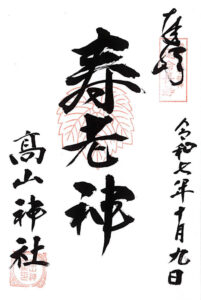 奉拝
令和七年十月九日
寿老神
高山神社